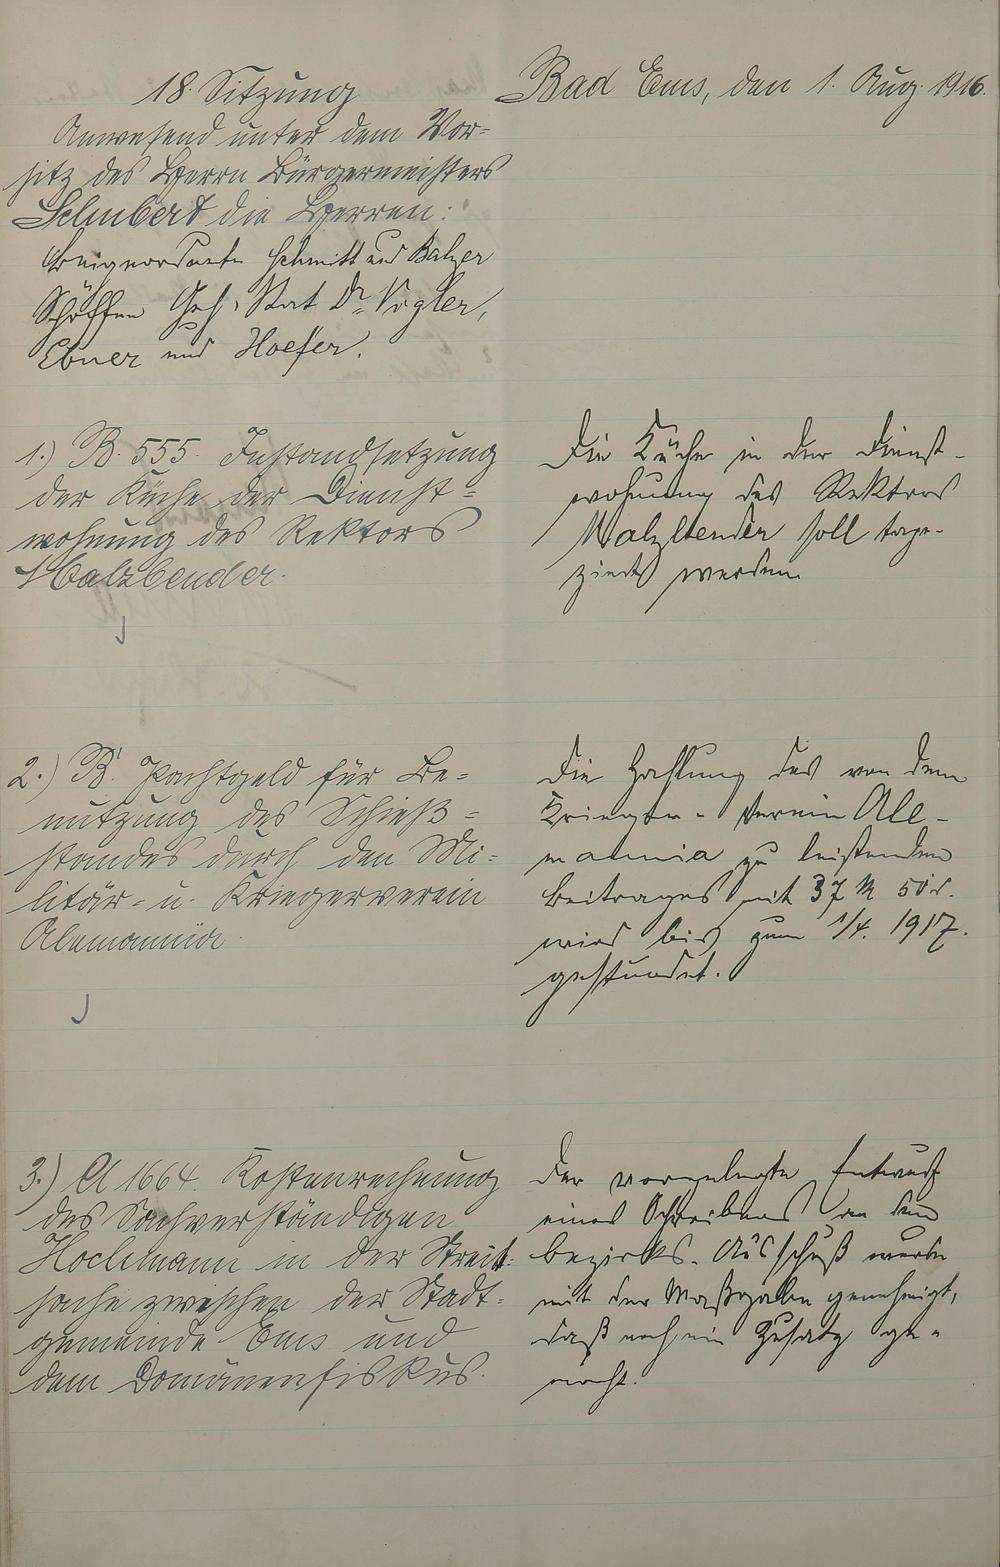 18. Sitzung
Anwesend unter dem Vor=
sitz des Herrn Bürgermeisters
Schubert die Herren:
Beigeordnete Schmitt und Balzer
Schöffen Geh. Rat Dr. Vogler,
Ebner und Hoefer.
Bad Ems, den 1. Aug. 1916.
1.) B. 555. Instandsetzung
der Küche der Dienst=
wohnung des Rektors
Malzbender.
Die Küche in der Dienst-
wohnung des Rektors
Malzbender soll tape-
ziert werden.
2.) B. Pachtgeld für Be=
nutzung des Schieß=
standes durch den Mi=
litär- u. Kriegerverein
Alemannia
Die Zahlung des von dem
Krieger-Verein Ale-
mannia zu leistenden
Beitrages mit 37 M 50 d.
wird bis zum 1/4. 1917.
gestundet.
3.) A 1664. Kostenrechnung
des Sachverständigen
Hochmann in der Streit=
sache zwischen der Stadt=
gemeinde Ems und
dem Domänenfiskus.
Der vorgelegte Entwurf
eines Schreibens an den
Bezirks-Ausschuß wurde
mit der Maßgabe genehmigt,
daß noch ein Zusatz ge-
macht.